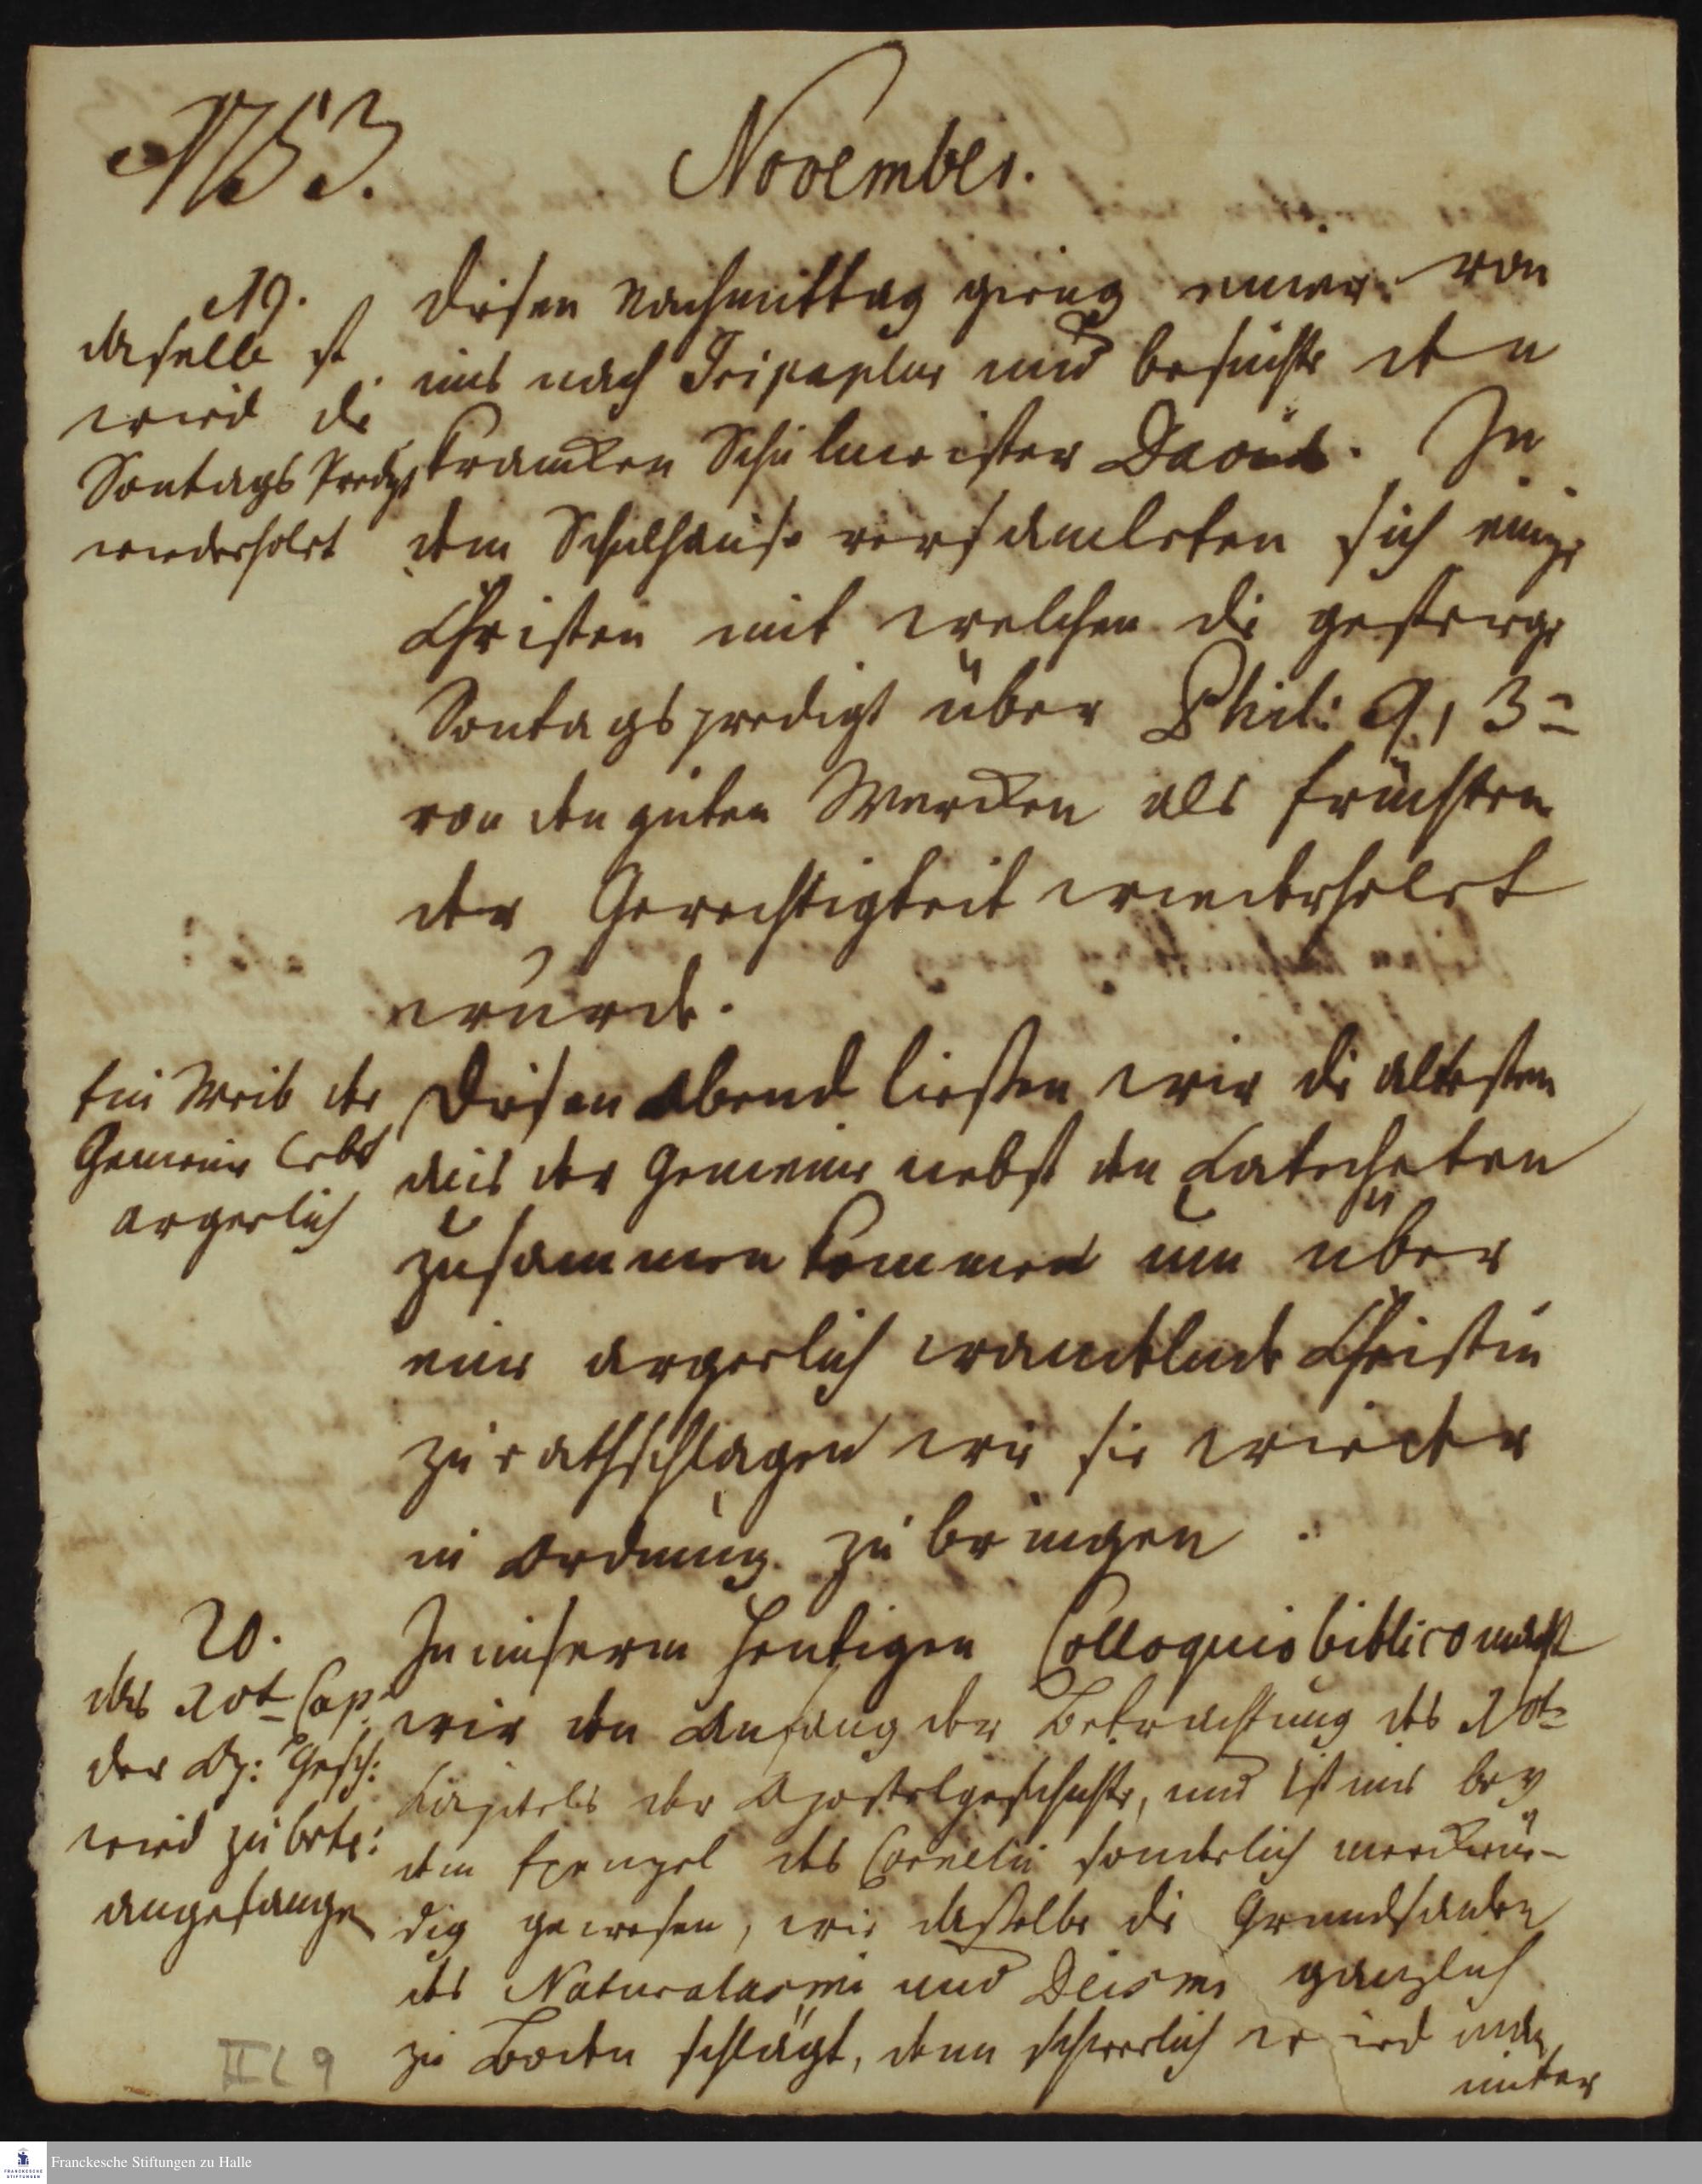 1753.
November.
19.
daselbst
wird die
Sontags Predigt
wiederholet
Diesen Nachmittag gieng einer von
uns nach Tripaplur und besuchte den
krancken Schulmeister David. In
dem Schulhause versamleten sich einige
Christen mit welchen die gestrige
Sontagspredigt über Phil: 9, 3
von den guten Wercken als früchten
der Gerechtigkeit wiederholet
wurde.
Ein Weib der
Gemeine lebt
argerlich
Diesen abend ließen wir die altesten
aus der Gemeine nebst den Catecheten
zusammen kommen um über
eine argerlich wandelnde Christin
zu rathschlagen wie sie wieder
in Ordnung zu bringen
20.
das 10t Cap.
der Ap: Gesch:
wird zu betr:
angefangen
In unserm heutigen Colloquio biblico macht
wir den Anfang der Betrachtung des 10t
Capitels der Apostelgeschichte, und ist uns bey
dem Exempel des Cornelii sonderlich merckwür-
dig gewesen, wie daßelbe die
des Naturalismi und Deismi ganzlich
zu Boden schlägt, denn schwerlich wird man
unter
II L 9
Franckesche Stiftungen zu Halle
FRANCKESCHE
STIFTUNGEN